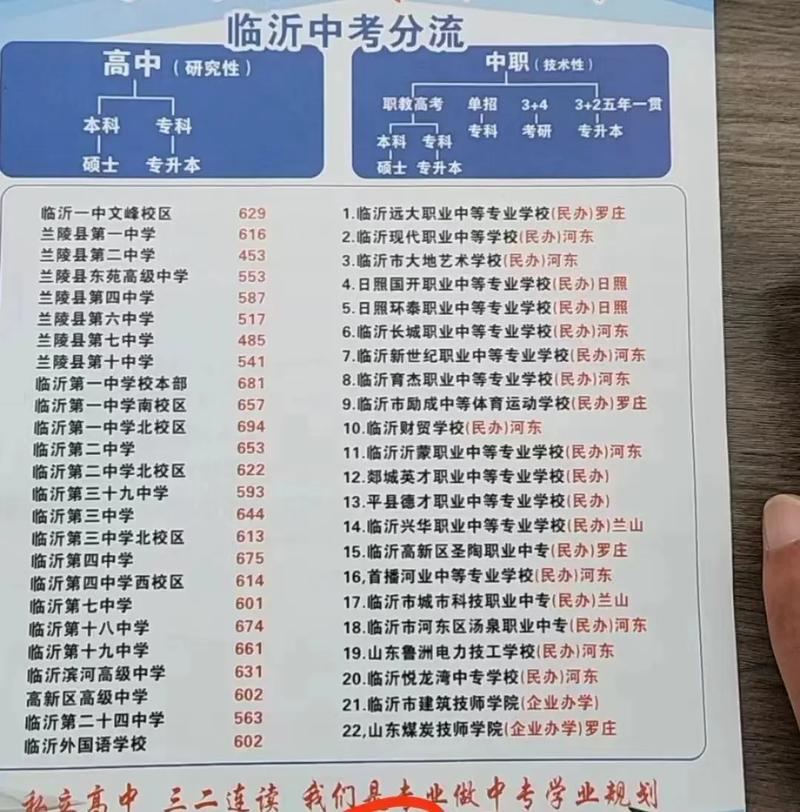 临沂中考分流
高中（研究性）
本科 专科
硕士 专升本
中职（技术性）
职教高考 单招 3+4 3+2五年一贯
本科 专科 专科 考研 专升本
硕士 专升本
临沂一中文峰校区 629
兰陵县第一中学 616
兰陵县第二中学 453
兰陵县东苑高级中学 553
兰陵县第四中学 587
兰陵县第六中学 517
兰陵县第七中学 485
兰陵县第十中学 541
临沂第一中学校本部 681
临沂第一中学南校区 657
临沂第一中学北校区 694
临沂第二中学 653
临沂第二中学北校区 622
临沂第三十九中学 593
临沂第三中学 644
临沂第三中学北校区 613
临沂第四中学 675
临沂第四中学西校区 614
临沂第七中学 601
临沂第十八中学 674
临沂第十九中学 661
临沂滨河高级中学 631
高新区高级中学 602
临沂第二十四中学 563
临沂外国语学校 602
1.临沂远大职业中等专业学校(民办)罗庄
2.临沂现代职业中等学校(民办)河东
3.临沂市大地艺术学校(民办)河东
4.日照国开职业中等专业学校(民办)日照
5.日照环泰职业中等专业学校(民办)日照
6.临沂长城职业中等专业学校(民办)河东
7.临沂新世纪职业中等专业学校(民办)河东
8.临沂育杰职业中等专业学校(民办)河东
9.临沂市励成中等体育运动学校(民办)罗庄
10.临沂财贸学校(民办)河东
11.临沂沂蒙职业中等专业学校(民办)河东
12.郯城英才职业中等专业学校(民办)
13.平县德才职业中等专业学校(民办)
14.临沂兴华职业中等专业学校(民办)兰山
15.临沂高新区圣陶职业中专(民办)罗庄
16,首播河业中等专业学校(民办)河东
17.临沂市城市科技职业中专(民办)兰山
18.临沂市河东区汤泉职业中专(民办)河东
19.山东鲁洲电力技工学校(民办)河东
20.临沂悦龙湾中专学校(民办)河东
21.临沂市建筑技师学院(企业办学)
22,山东煤炭技师学院(企业办学)罗庄
私立高中 三二连读 我们是专业做中专学业规划